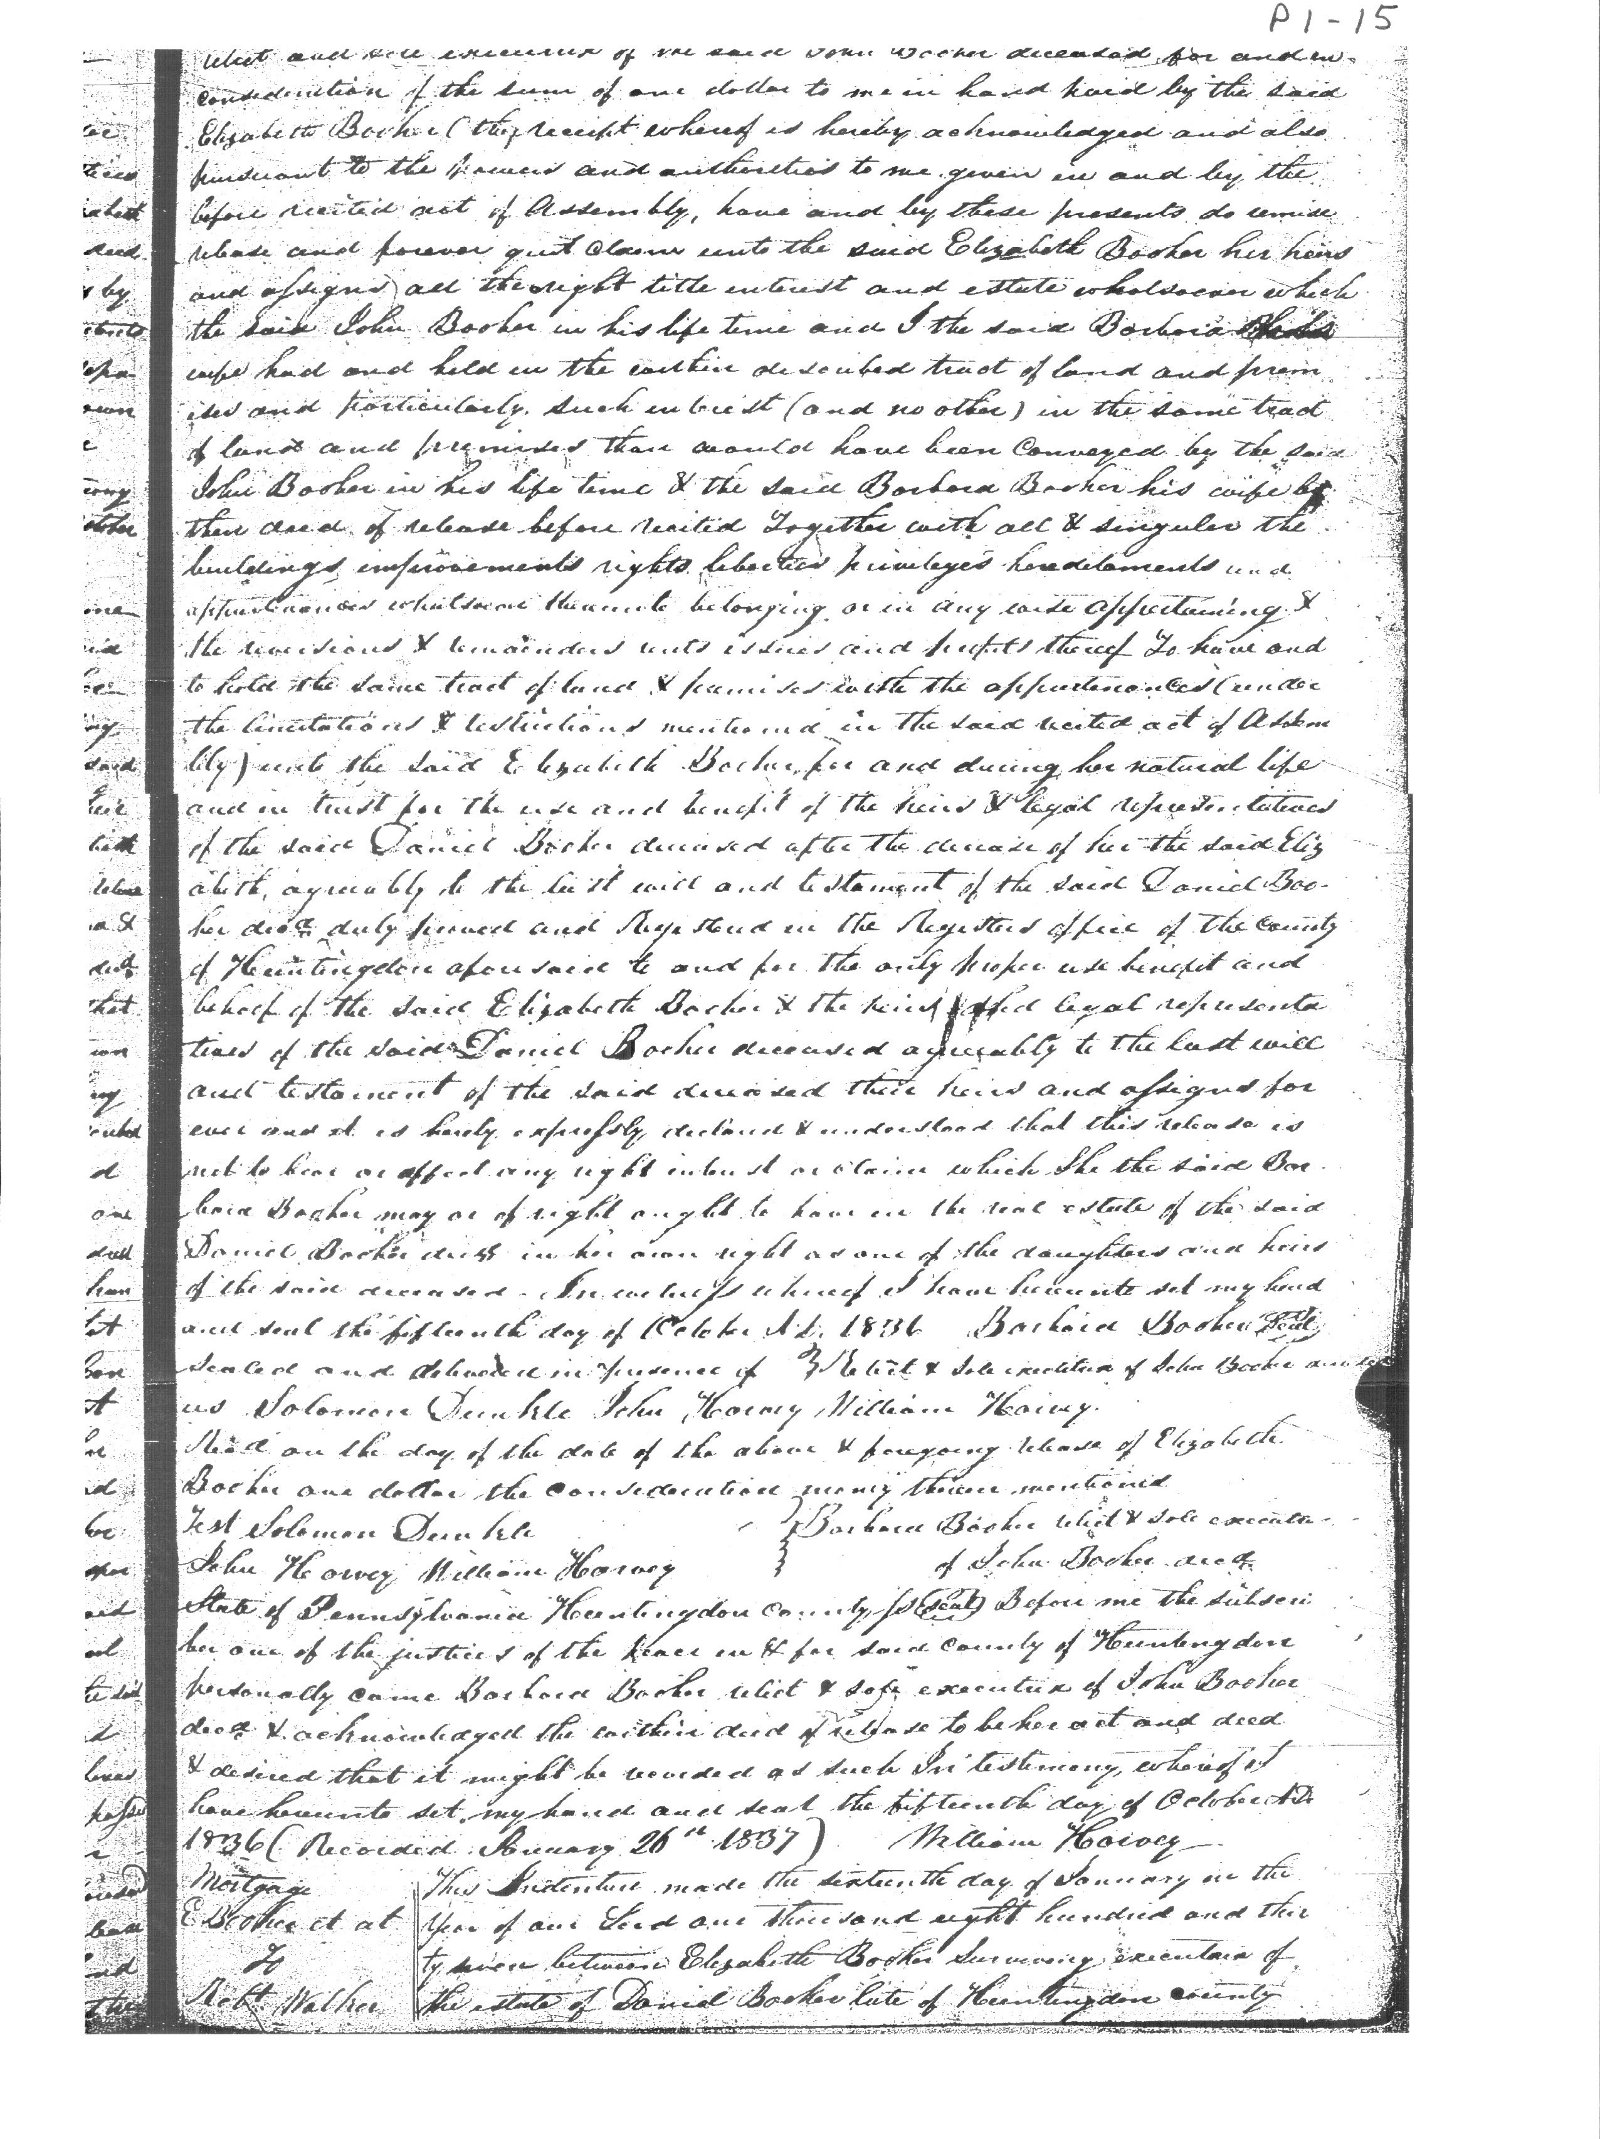 P1-15
relict and sole executrix of the said John Booher deceased for and in
consideration of the sum of one dollar to me in hand paid by the said
Elizabeth Booher (the receipt whereof is hereby acknowledged and also
pursuant to the powers and authorities to me given in and by the
before recited act of Assembly, have and by these presents do remise
release and forever quit claim unto the said Elizabeth Booher her heirs
and assigns all the right title interest and estate whatsoever which
the said John Booher in his life time and I the said Barbara
wife had and held in the within described tract of land and prem
ises and particularly such interest (and no other) in the same tract
of land and premises than would have been conveyed by the said
John Booher in his life time & the said Barbara Booher his wife by
their deed of release before recited Together with all & singular the
buildings improvements rights liberties priviliges hereditaments and
appurtinances whatsoever thereunto belonging or in any wise appertaining &
the reversions & remainders rents issues and profits thereof To have and
to hold the same tract of land & premises with the appurtinances (under
the limitations & restrictions mentioned in the said recited act of Assem
bly) unto the said Elizabeth Booher, for and during her natural life
and in trust for the use and benefit of the heirs & legal representatives
of the said Daniel Booher deceased after the decease of her the said Eliz
abeth, agreeably to the last will and testament of the said Daniel Boo-
her decd duly proved and Registered in the Registers office of the county
of Huntingdon aforesaid to and for the only proper use benefit and
behoof of the said Elizabeth Booher & the heirs and legal representa
tives of the said Daniel Booher deceased agreeably to the last will
and testament of the said deceased their heirs and assigns for
ever and it is hereby expressly declared & understood that this release is
not to bear or affect any right interest or claim which She the said Bar
bara Booher may or of right ought to have in the real estate of the said
Daniel Booher decd in her own right as one of the daughters and heirs
of the said deceased - In witness whereof I have hereunto set my hand
and seal the fifteenth day of October A.D. 1836 Barbara Booher Seal
Sealed and delivered in presence of } Relict & sole executrix of John Booher
us Solomon Dunkle John Harvey William Harvey.
Recd on the day of the date of the above & foregoing release of Elizabeth
Booher one dollar the consideration money therein mentioned
Test Solomon Dunkle } Barbara Booher relict & sole executrix
John Harvey William Harvey of John Booher decd
State of Pennsylvania Huntingdon county ss (seal) Before me the subscri
ber one of the justices of the peace in & for said county of Huntingdon
personally came Barbara Booher relict & sole executrix of John Booher
decd & acknowledged the within deed of release to be her act and deed
& desired that it might be recorded as such In testimony whereof I
have hereunto set my hand and seal the fifteenth day of October AD.
1836 (Recorded January 26th 1837) William Harvey
Mortgage
E Booher et al
To
Robt Walker
This Indenture made the sixteenth day of January in the
year of our Lord one thousand eight hundred and thir
ty seven between Elizabeth Booher Surviving executrix of
the estate of Daniel Booher late of Huntingdon county